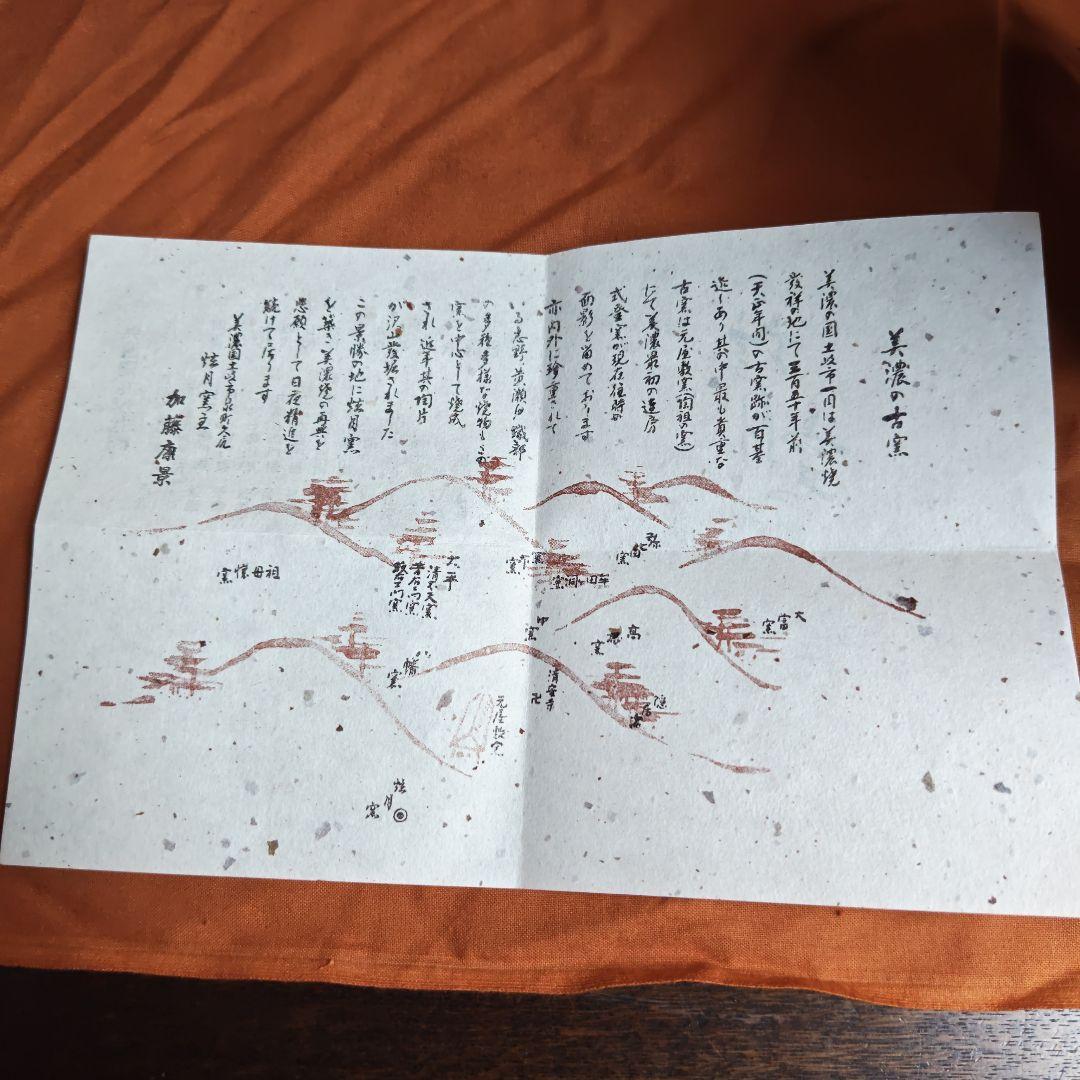 美濃の古窯
美濃の国土岐市一円は美濃焼
発祥の地にて三百五十年前
(天正年間)の古窯跡が百基
近くあり其の中最も貴重な
古窯は元屋敷窯(陶祖の窯)
にて美濃最初の連房
式登窯が現在往時の
面影を留めております
亦内外に珍重されて
いる志野黄瀬戸織部
の多種多様な焼物もこの
窯を中心として焼成
され近年其の陶片
が沢山発掘されました
この景勝の地に炫月窯
を築き美濃焼の再興を
悲願として日夜精進を
続けて居ります
美濃国土岐市泉町久尻
炫月窯主
加藤康景
祖母懐窯
大平
清太夫窯
窯下窯
牟田ヶ洞窯
弥七田窯
大富窯
高根窯
中窯
八幡窯
清安寺
卍
隠居窯
元屋敷窯
炫月窯